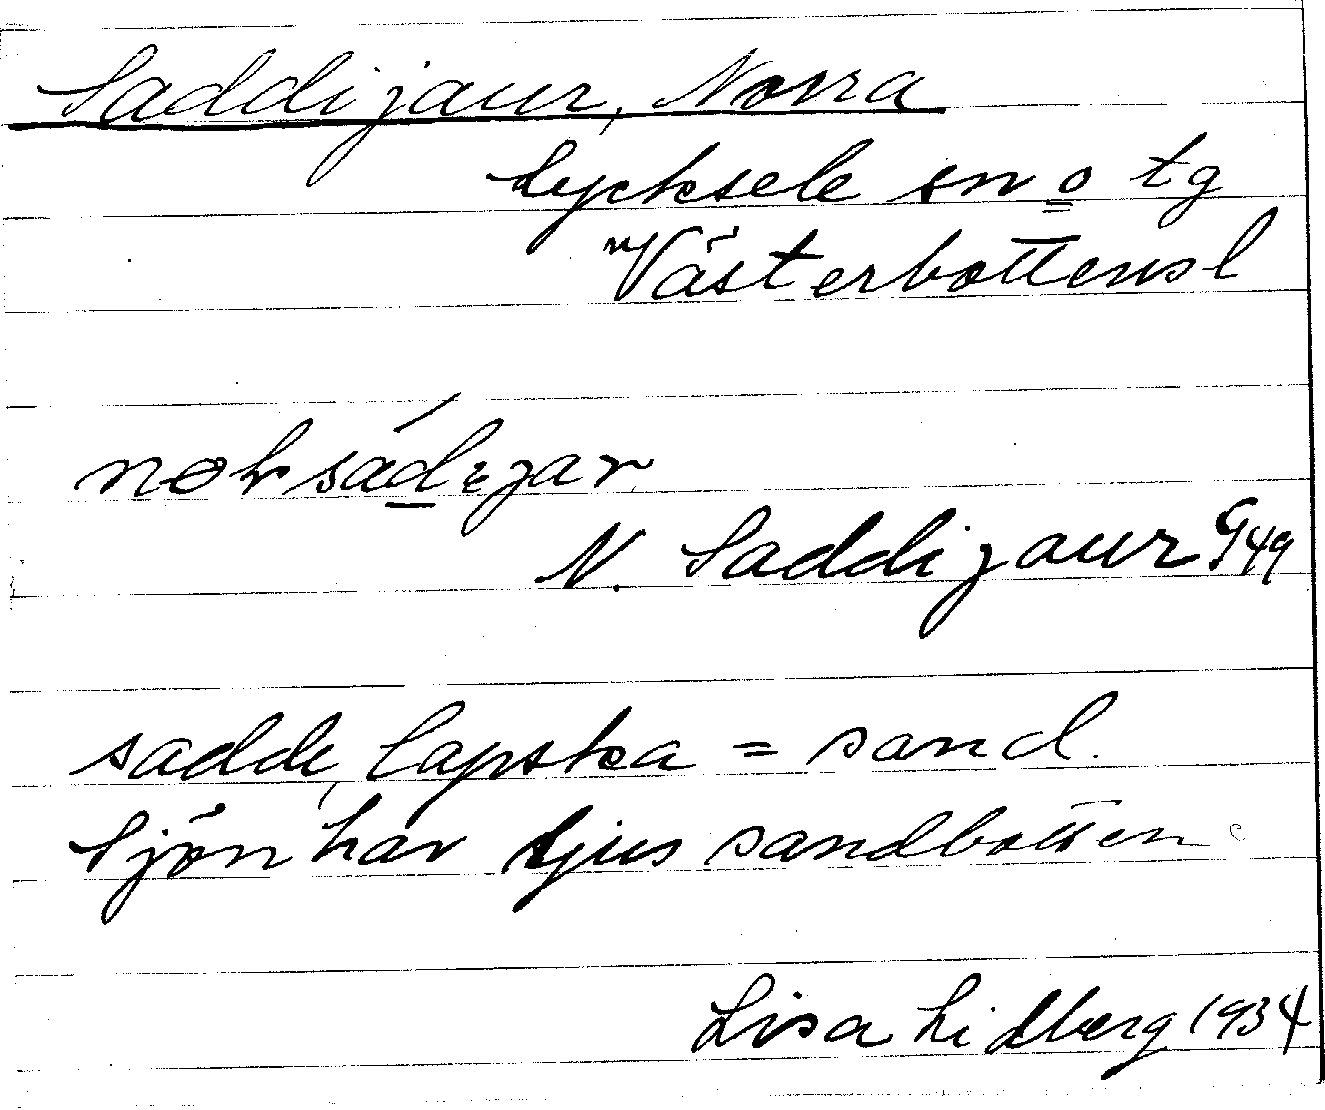 Saddijaur, Norra
Lycksele sn o tg
Västerbottensl
N. Saddijaur G 49
sadde, lapska = sand.
Sjön har ljus sandbotten
Lisa Lidberg 1934